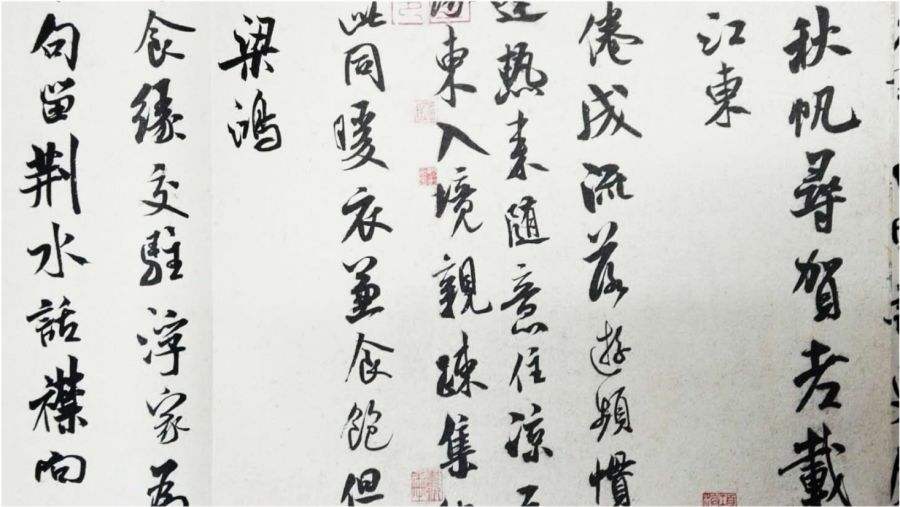 秋帆尋賀老載
江東
倦成流落遊頻慣
蓬熱来隨意住涼
東入境親疎集
此同暖衣兼食飽但
梁鴻
食緣交駐浮家為
句留荊水話襟向